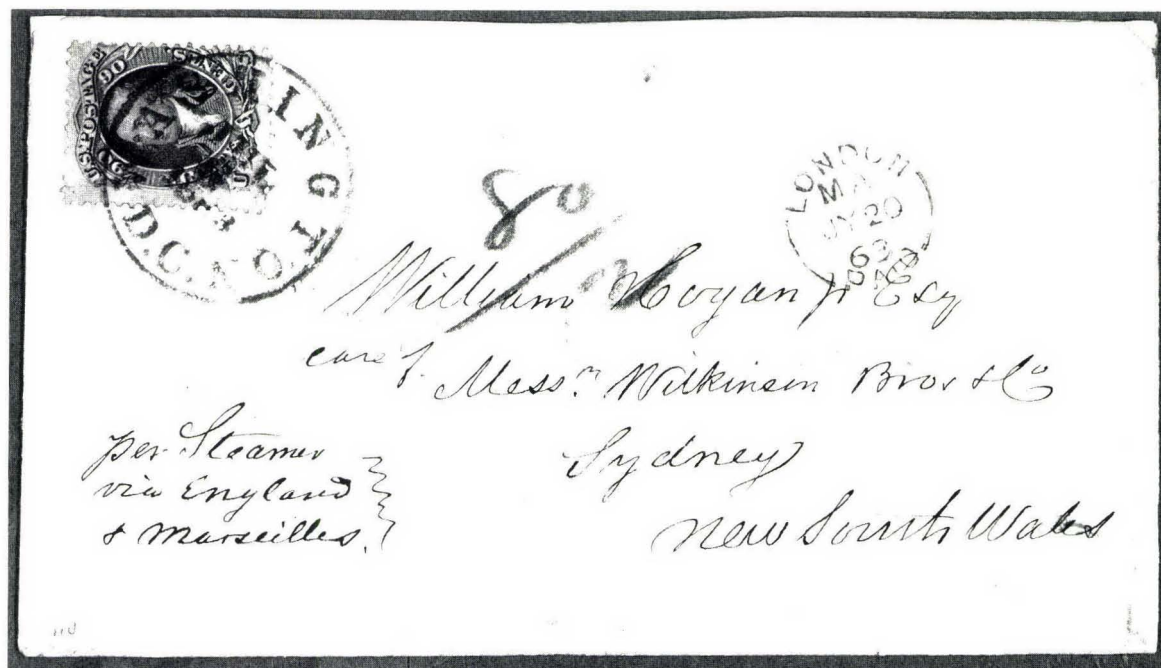 U.S. POSTAGE
90 90
WASHINGTON
D.C.
1863
80
LONDON
JY 20
63
William Hogan Jr Esq
care of
Messrs Wilkinson Bros & Co
Sydney
New South Wales
per Steamer
via England
& Marseilles.